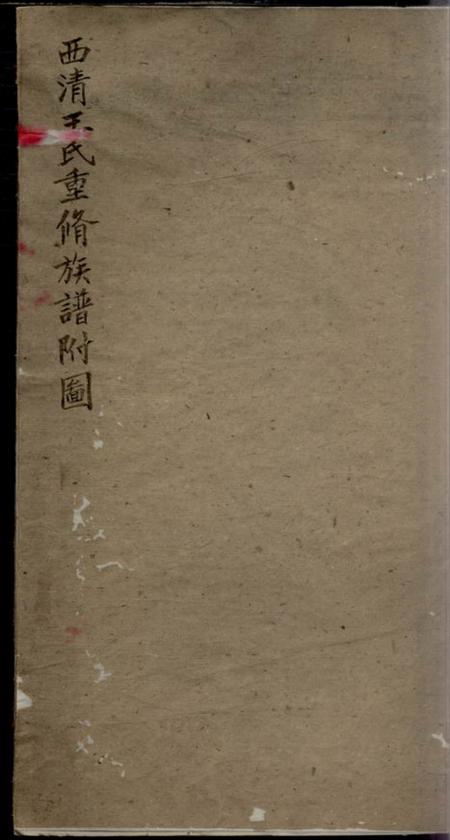 西清王氏重脩族譜附圖